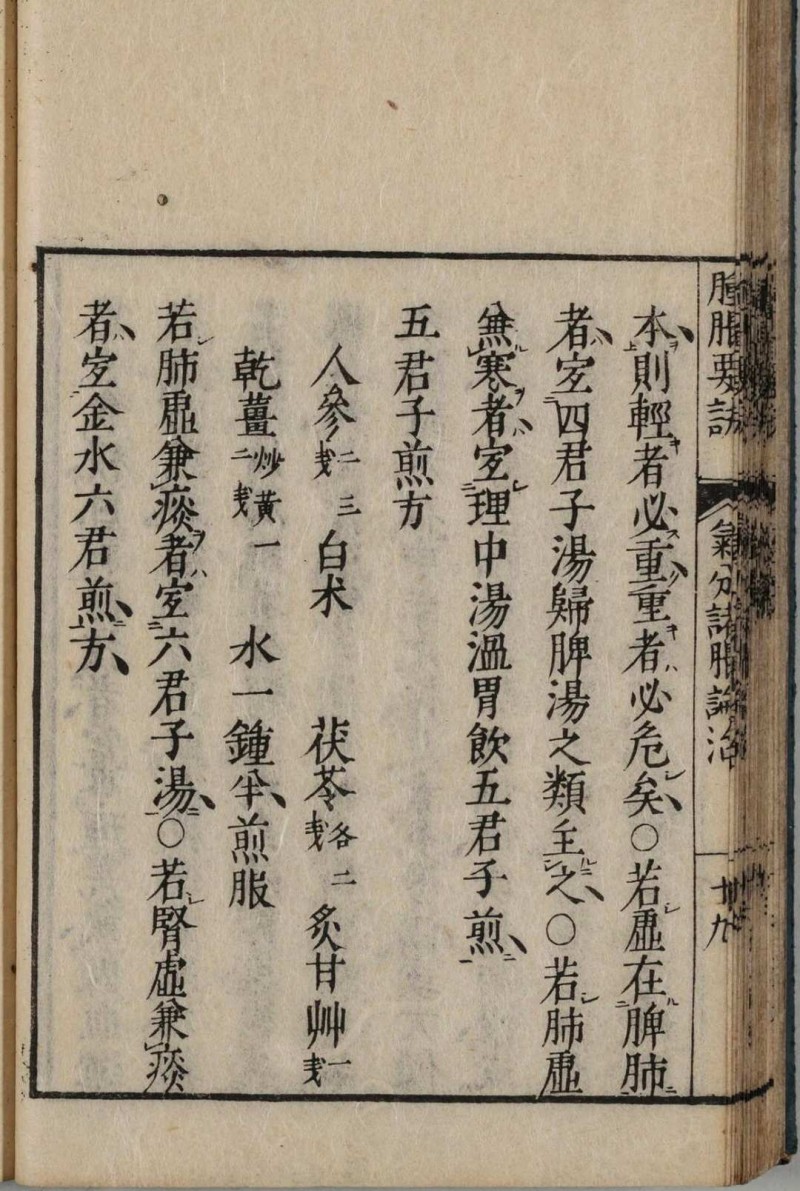 腫脹要訣 氣分諸脹論治 廿九
本則輕者必重重者必危矣○若虛在脾肺
者宜四君子湯歸脾湯之類主之○若肺虛
無寒者宜理中湯溫胃飲五君子煎
五君子煎方
人參二三戔 白朮 茯苓各二戔 炙甘艸一戔
乾薑炒黃一二戔 水一鍾半煎服
若肺虛兼痰者宜六君子湯○若腎虛兼痰
者宜金水六君煎方